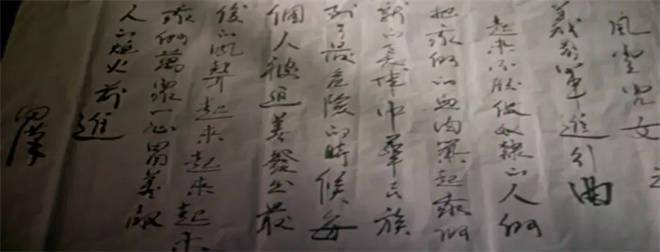 風雲兒女 之
義勇軍進行曲
起來不願做奴隸的人們
把我們的血肉築起我們
新的長城中華民族
到了最危險的時候每
個人被迫着發出最
後的吼聲起來起來起來
我們萬衆一心冒着敵
人的炮火前進
田漢